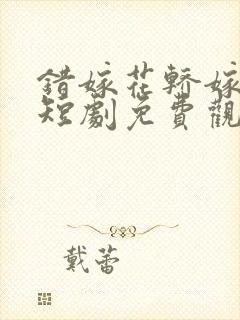 錯嫁花轎嫁
短劇免費觀
戴蕾